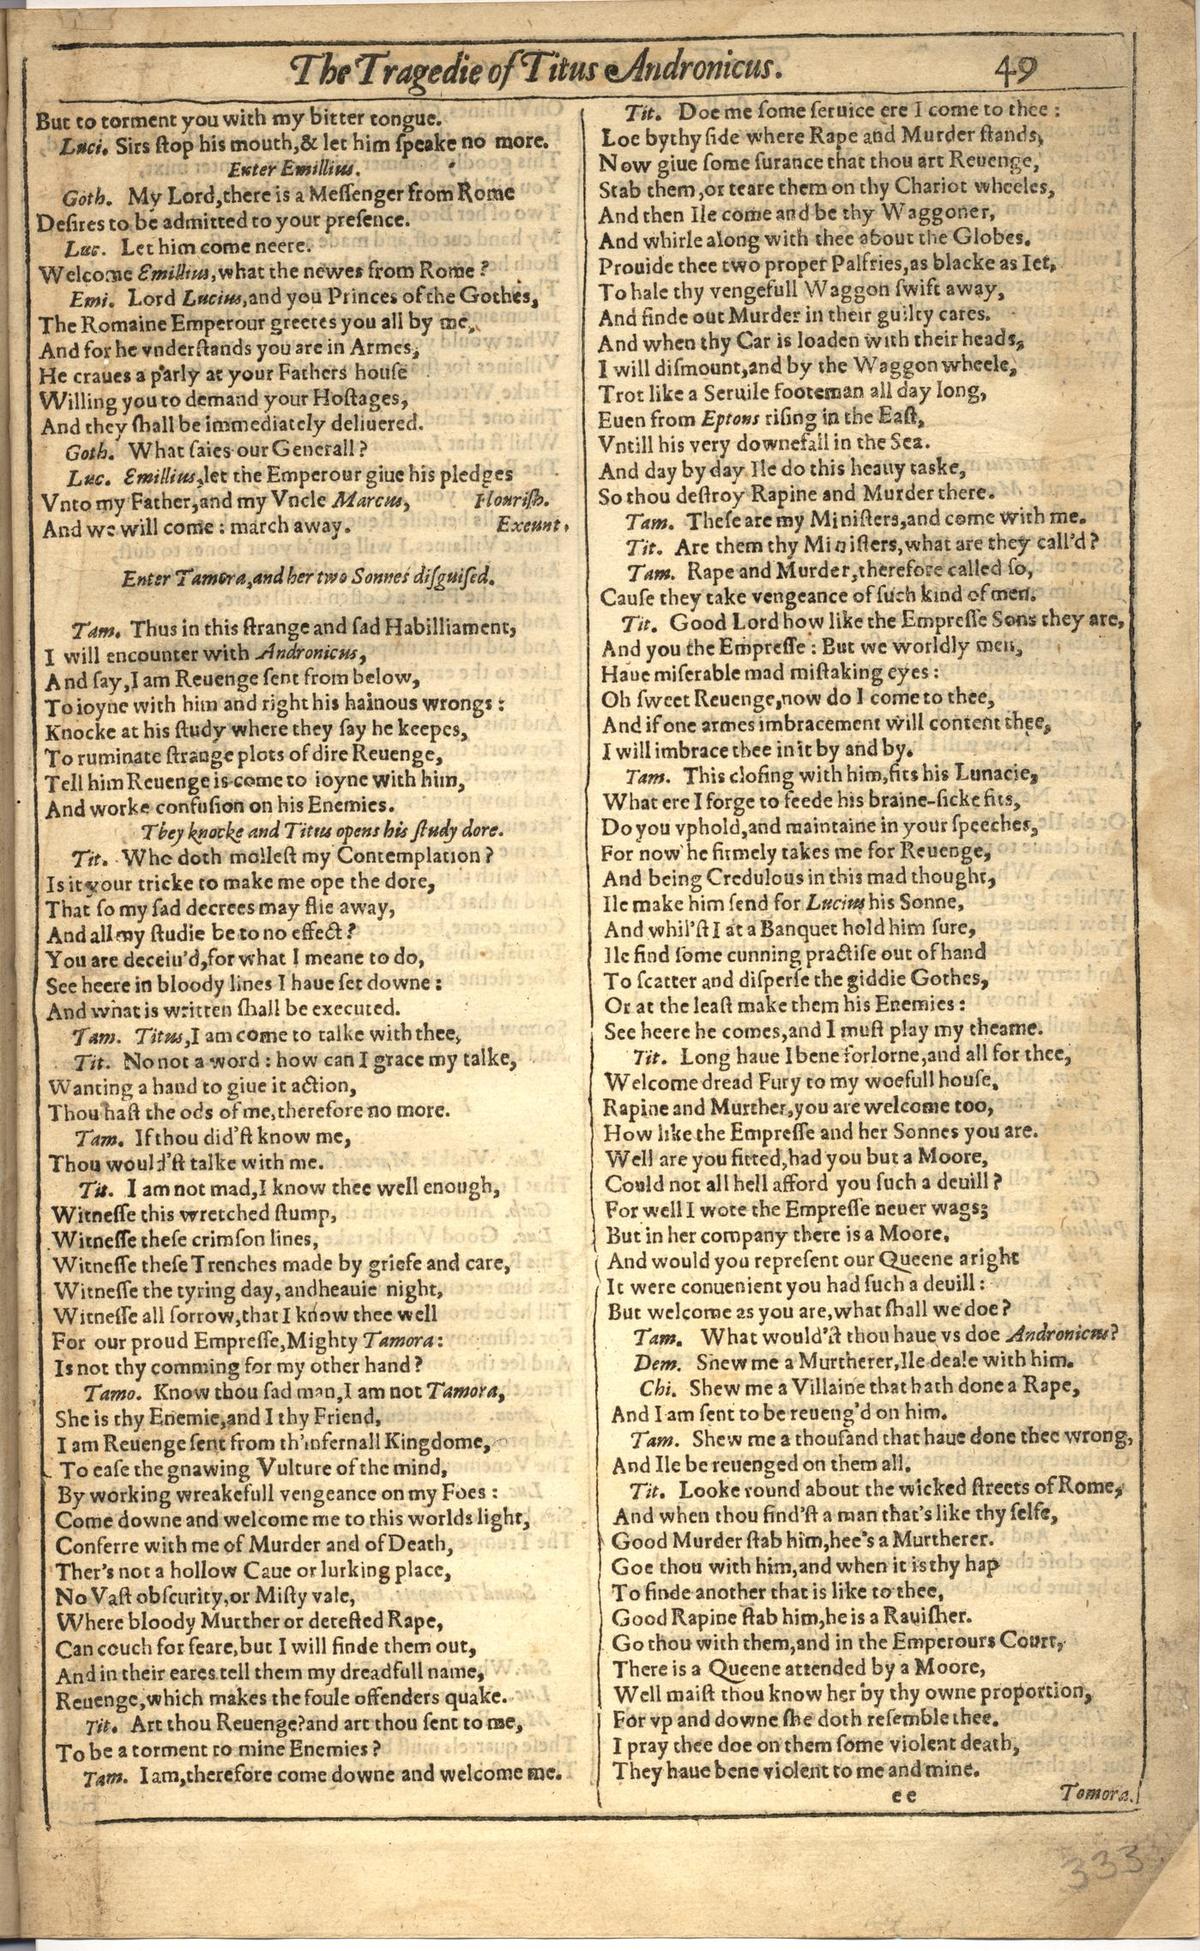 The Tragedie of Titus Andronicus. 49
But to torment you with my bitter tongue.
Luci. Sirs ſtop his mouth,& let him ſpeake no more.
Enter Emillius.
Goth. My Lord,there is a Meſſenger from Rome
Deſires to be admitted to your preſence.
Luc. Let him come neere.
Welcome Emillius,what the newes from Rome?
Emi. Lord Lucius,and you Princes of the Gothes,
The Romaine Emperour greetes you all by me,
And for he vnderſtands you are in Armes,
He craues a parly at your Fathers houſe
Willing you to demand your Hoſtages,
And they ſhall be immediately deliuered.
Goth. What ſaies our Generall?
Luc. Emillius,let the Emperour giue his pledges
Vnto my Father,and my Vncle Marcus, Flouriſh.
And we will come: march away. Exeunt.
Enter Tamora,and her two Sonnes diſguiſed.
Tam. Thus in this ſtrange and ſad Habilliament,
I will encounter with Andronicus,
And ſay,I am Reuenge ſent from below,
To ioyne with him and right his hainous wrongs:
Knocke at his ſtudy where they ſay he keepes,
To ruminate ſtrange plots of dire Reuenge,
Tell him Reuenge is come to ioyne with him,
And worke confuſion on his Enemies.
They knocke and Titus opens his ſtudy dore.
Tit. Who doth molleſt my Contemplation?
Is it your tricke to make me ope the dore,
That ſo my ſad decrees may flie away,
And all my ſtudie be to no effect?
You are deceiu'd,for what I meane to do,
See heere in bloody lines I haue ſet downe:
And what is written ſhall be executed.
Tam. Titus,I am come to talke with thee,
Tit. No not a word: how can I grace my talke,
Wanting a hand to giue it action,
Thou haſt the ods of me,therefore no more.
Tam. If thou did'ſt know me,
Thou would'ſt talke with me.
Tit. I am not mad,I know thee well enough,
Witneſſe this wretched ſtump,
Witneſſe theſe crimſon lines,
Witneſſe theſe Trenches made by griefe and care,
Witneſſe the tyring day, andheauie night,
Witneſſe all ſorrow,that I know thee well
For our proud Empreſſe,Mighty Tamora:
Is not thy comming for my other hand?
Tamo. Know thou ſad man,I am not Tamora,
She is thy Enemie,and I thy Friend,
I am Reuenge ſent from th'infernall Kingdome,
To eaſe the gnawing Vulture of the mind,
By working wreakefull vengeance on my Foes:
Come downe and welcome me to this worlds light,
Conferre with me of Murder and of Death,
Ther's not a hollow Caue or lurking place,
No Vaſt obſcurity,or Miſty vale,
Where bloody Murther or deteſted Rape,
Can couch for feare,but I will finde them out,
And in their eares tell them my dreadfull name,
Reuenge,which makes the foule offenders quake.
Tit. Art thou Reuenge?and art thou ſent to me,
To be a torment to mine Enemies?
Tam. I am,therefore come downe and welcome me.
Tit. Doe me ſome ſeruice ere I come to thee:
Loe by thy ſide where Rape and Murder ſtands,
Now giue ſome ſurance that thou art Reuenge,
Stab them,or teare them on thy Chariot wheeles,
And then Ile come and be thy Waggoner,
And whirle along with thee about the Globes.
Prouide thee two proper Palfries,as blacke as Iet,
To hale thy vengefull Waggon ſwift away,
And finde out Murder in their guilty cares.
And when thy Car is loaden with their heads,
I will diſmount,and by the Waggon wheele,
Trot like a Seruile footeman all day long,
Euen from Eptons riſing in the Eaſt,
Vntill his very downefall in the Sea.
And day by day Ile do this heauy taske,
So thou deſtroy Rapine and Murder there.
Tam. Theſe are my Miniſters,and come with me.
Tit. Are them thy Miniſters,what are they call'd?
Tam. Rape and Murder,therefore called ſo,
Cauſe they take vengeance of ſuch kind of men.
Tit. Good Lord how like the Empreſſe Sons they are,
And you the Empreſſe: But we worldly men,
Haue miſerable mad miſtaking eyes:
Oh ſweet Reuenge,now do I come to thee,
And if one armes imbracement will content thee,
I will imbrace thee in it by and by.
Tam. This cloſing with him,fits his Lunacie,
What ere I forge to feede his braine-ſicke fits,
Do you vphold,and maintaine in your ſpeeches,
For now he firmely takes me for Reuenge,
And being Credulous in this mad thought,
Ile make him ſend for Lucius his Sonne,
And whil'ſt I at a Banquet hold him ſure,
Ile find ſome cunning practiſe out of hand
To ſcatter and diſperſe the giddie Gothes,
Or at the leaſt make them his Enemies:
See heere he comes,and I muſt play my theame.
Tit. Long haue I bene forlorne,and all for thee,
Welcome dread Fury to my woefull houſe,
Rapine and Murther,you are welcome too,
How like the Empreſſe and her Sonnes you are.
Well are you fitted,had you but a Moore,
Could not all hell afford you ſuch a deuill?
For well I wote the Empreſſe neuer wags;
But in her company there is a Moore,
And would you repreſent our Queene aright
It were conuenient you had ſuch a deuill:
But welcome as you are,what ſhall we doe?
Tam. What would'ſt thou haue vs doe Andronicus?
Dem. Shew me a Murtherer,Ile deale with him.
Chi. Shew me a Villaine that hath done a Rape,
And I am ſent to be reueng'd on him.
Tam. Shew me a thouſand that haue done thee wrong,
And Ile be reuenged on them all.
Tit. Looke round about the wicked ſtreets of Rome,
And when thou find'ſt a man that's like thy ſelfe,
Good Murder ſtab him,hee's a Murtherer.
Goe thou with him,and when it is thy hap
To finde another that is like to thee,
Good Rapine ſtab him,he is a Rauiſher.
Go thou with them,and in the Emperours Court,
There is a Queene attended by a Moore,
Well maiſt thou know her by thy owne proportion,
For vp and downe ſhe doth reſemble thee.
I pray thee doe on them ſome violent death,
They haue bene violent to me and mine.
ee Tomora.
333